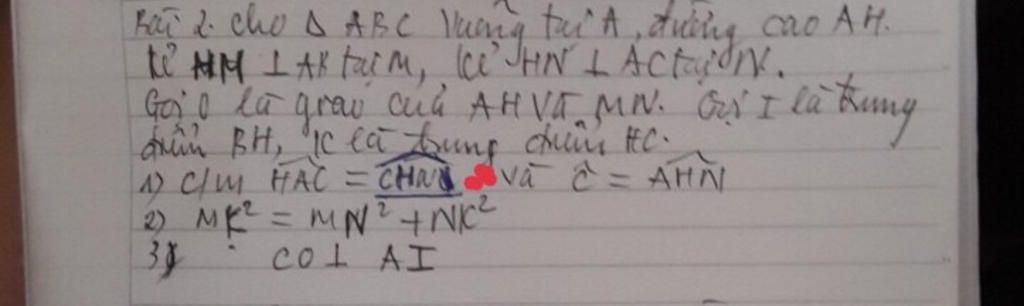 Bài 2. Cho Δ ABC vuông tại A, đường cao AH.
kẻ HM ⊥ AB tại M, kẻ HN ⊥ AC tại N.
Gọi O là giao của AH và MN. Gọi I là trung
điểm BH, K là trung điểm HC.
1) C/m \widehat{HAC} = \widehat{CHN} và \widehat{C} = \widehat{AHN}
2) MK² = MN² + NK²
3) CO ⊥ AI